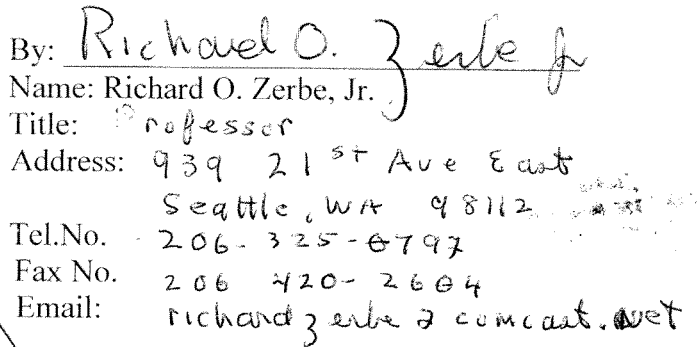 By: Richard O. Zerbe Jr
Name: Richard O. Zerbe, Jr.
Title: Professor
Address: 939 21st Ave East
Seattle, WA 98112
Tel.No. 206-325-0797
Fax No. 206 420-2604
Email: richardzerbe@comcast.net